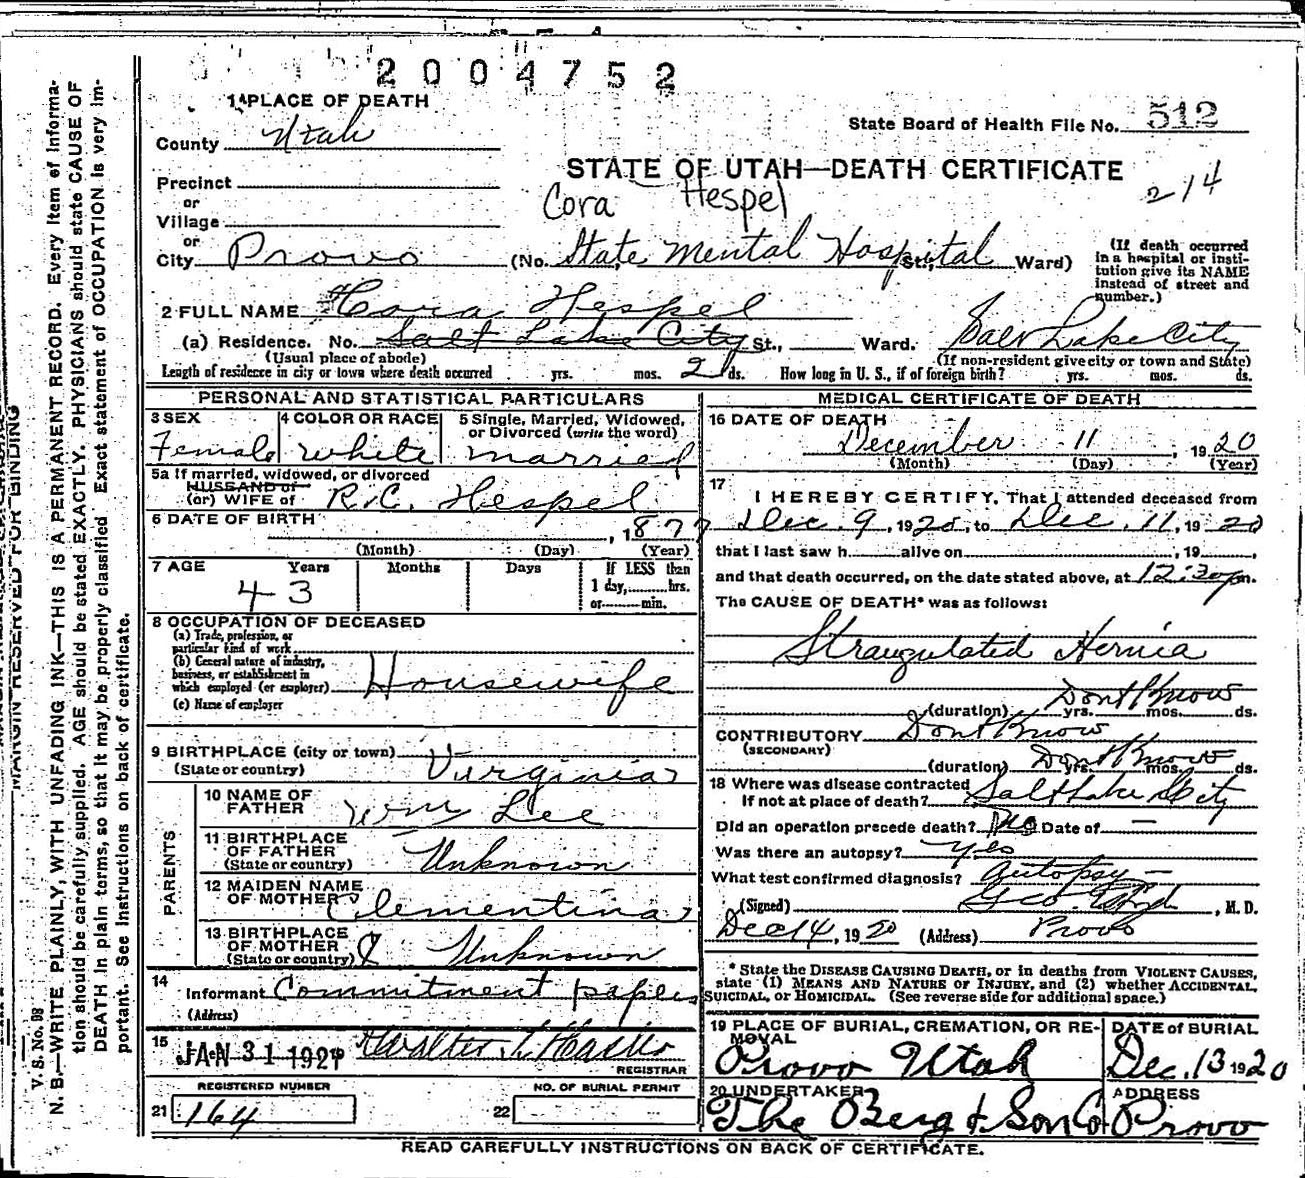 2004752
1 PLACE OF DEATH
County Utah
State Board of Health File No. 512
STATE OF UTAH—DEATH CERTIFICATE
214
Precinct
or
Village
or
Cora Hespel
City Provo (No. State Mental Hospital St., Ward)
(If death occurred in a hospital or institution give its NAME instead of street and number.)
2 FULL NAME Cora Hespel
(a) Residence. No. Salt Lake City St., Ward. Salt Lake City
(Usual place of abode) (If non-resident give city or town and State)
Length of residence in city or town where death occurred yrs. mos. 2 ds. How long in U. S., if of foreign birth? yrs. mos. ds.
PERSONAL AND STATISTICAL PARTICULARS
3 SEX
Female
4 COLOR OR RACE
White
5 Single, Married, Widowed,
or Divorced (write the word)
Married
5a If married, widowed, or divorced
HUSBAND of
(or) WIFE of R.C. Hespel
6 DATE OF BIRTH
, 1877
(Month) (Day) (Year)
7 AGE Years Months Days If LESS than
1 day, hrs.
or min.
43
8 OCCUPATION OF DECEASED
(a) Trade, profession, or
particular kind of work
(b) General nature of industry,
business, or establishment in
which employed (or employer) Housewife
(c) Name of employer
9 BIRTHPLACE (city or town)
(State or country) Virginia
PARENTS
10 NAME OF
FATHER Wm Lee
11 BIRTHPLACE
OF FATHER
(State or country) Unknown
12 MAIDEN NAME
OF MOTHER Clementina
13 BIRTHPLACE
OF MOTHER
(State or country) Unknown
14
Informant Commitment papers
(Address)
15 JAN 31 1921 Walter T Hasler
REGISTRAR
REGISTERED NUMBER
21 164
NO. OF BURIAL PERMIT
22
MEDICAL CERTIFICATE OF DEATH
16 DATE OF DEATH
December 11, 1920
(Month) (Day) (Year)
17
I HEREBY CERTIFY, That I attended deceased from
Dec. 9, 1920, to Dec. 11, 1920
that I last saw h alive on , 19 ,
and that death occurred, on the date stated above, at 12:30 pm.
The CAUSE OF DEATH* was as follows:
Strangulated Hernia
(duration) Dont Know yrs. mos. ds.
CONTRIBUTORY Dont Know
(SECONDARY)
(duration) Dont Know yrs. mos. ds.
18 Where was disease contracted
If not at place of death? Salt Lake City
Did an operation precede death? No Date of —
Was there an autopsy? Yes
What test confirmed diagnosis? Autopsy —
(Signed) Geo. , M. D.
Dec 14, 1920 (Address) Provo
* State the DISEASE CAUSING DEATH, or in deaths from VIOLENT CAUSES,
state (1) MEANS AND NATURE OF INJURY, and (2) whether ACCIDENTAL,
SUICIDAL, or HOMICIDAL. (See reverse side for additional space.)
19 PLACE OF BURIAL, CREMATION, OR RE-
MOVAL
Provo Utah
DATE of BURIAL
Dec. 13 1920
20 UNDERTAKER
The Berg & Son Co
ADDRESS
Provo
READ CAREFULLY INSTRUCTIONS ON BACK OF CERTIFICATE.
MARGIN RESERVED FOR BINDING
V. S. No. 98
N. B.—WRITE PLAINLY, WITH UNFADING INK—THIS IS A PERMANENT RECORD. Every item of informa-
tion should be carefully supplied. AGE should be stated EXACTLY. PHYSICIANS should state CAUSE OF
DEATH in plain terms, so that it may be properly classified. Exact statement of OCCUPATION is very im-
portant. See instructions on back of certificate.